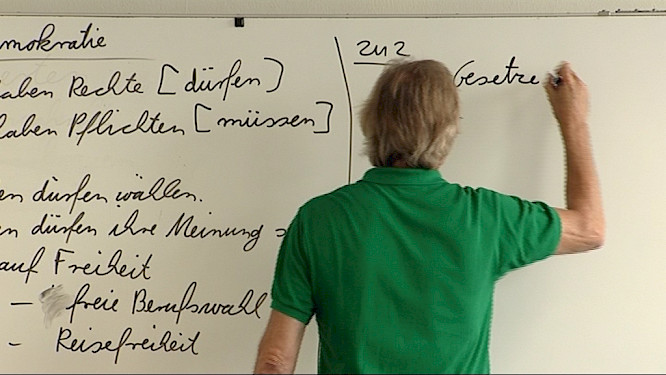 mokratie
aben Rechte [dürfen]
haben Pflichten [müssen]
en dürfen wählen.
en dürfen ihre Meinung
auf Freiheit
– freie Berufswahl
– Reisefreiheit
zu 2
Gesetze